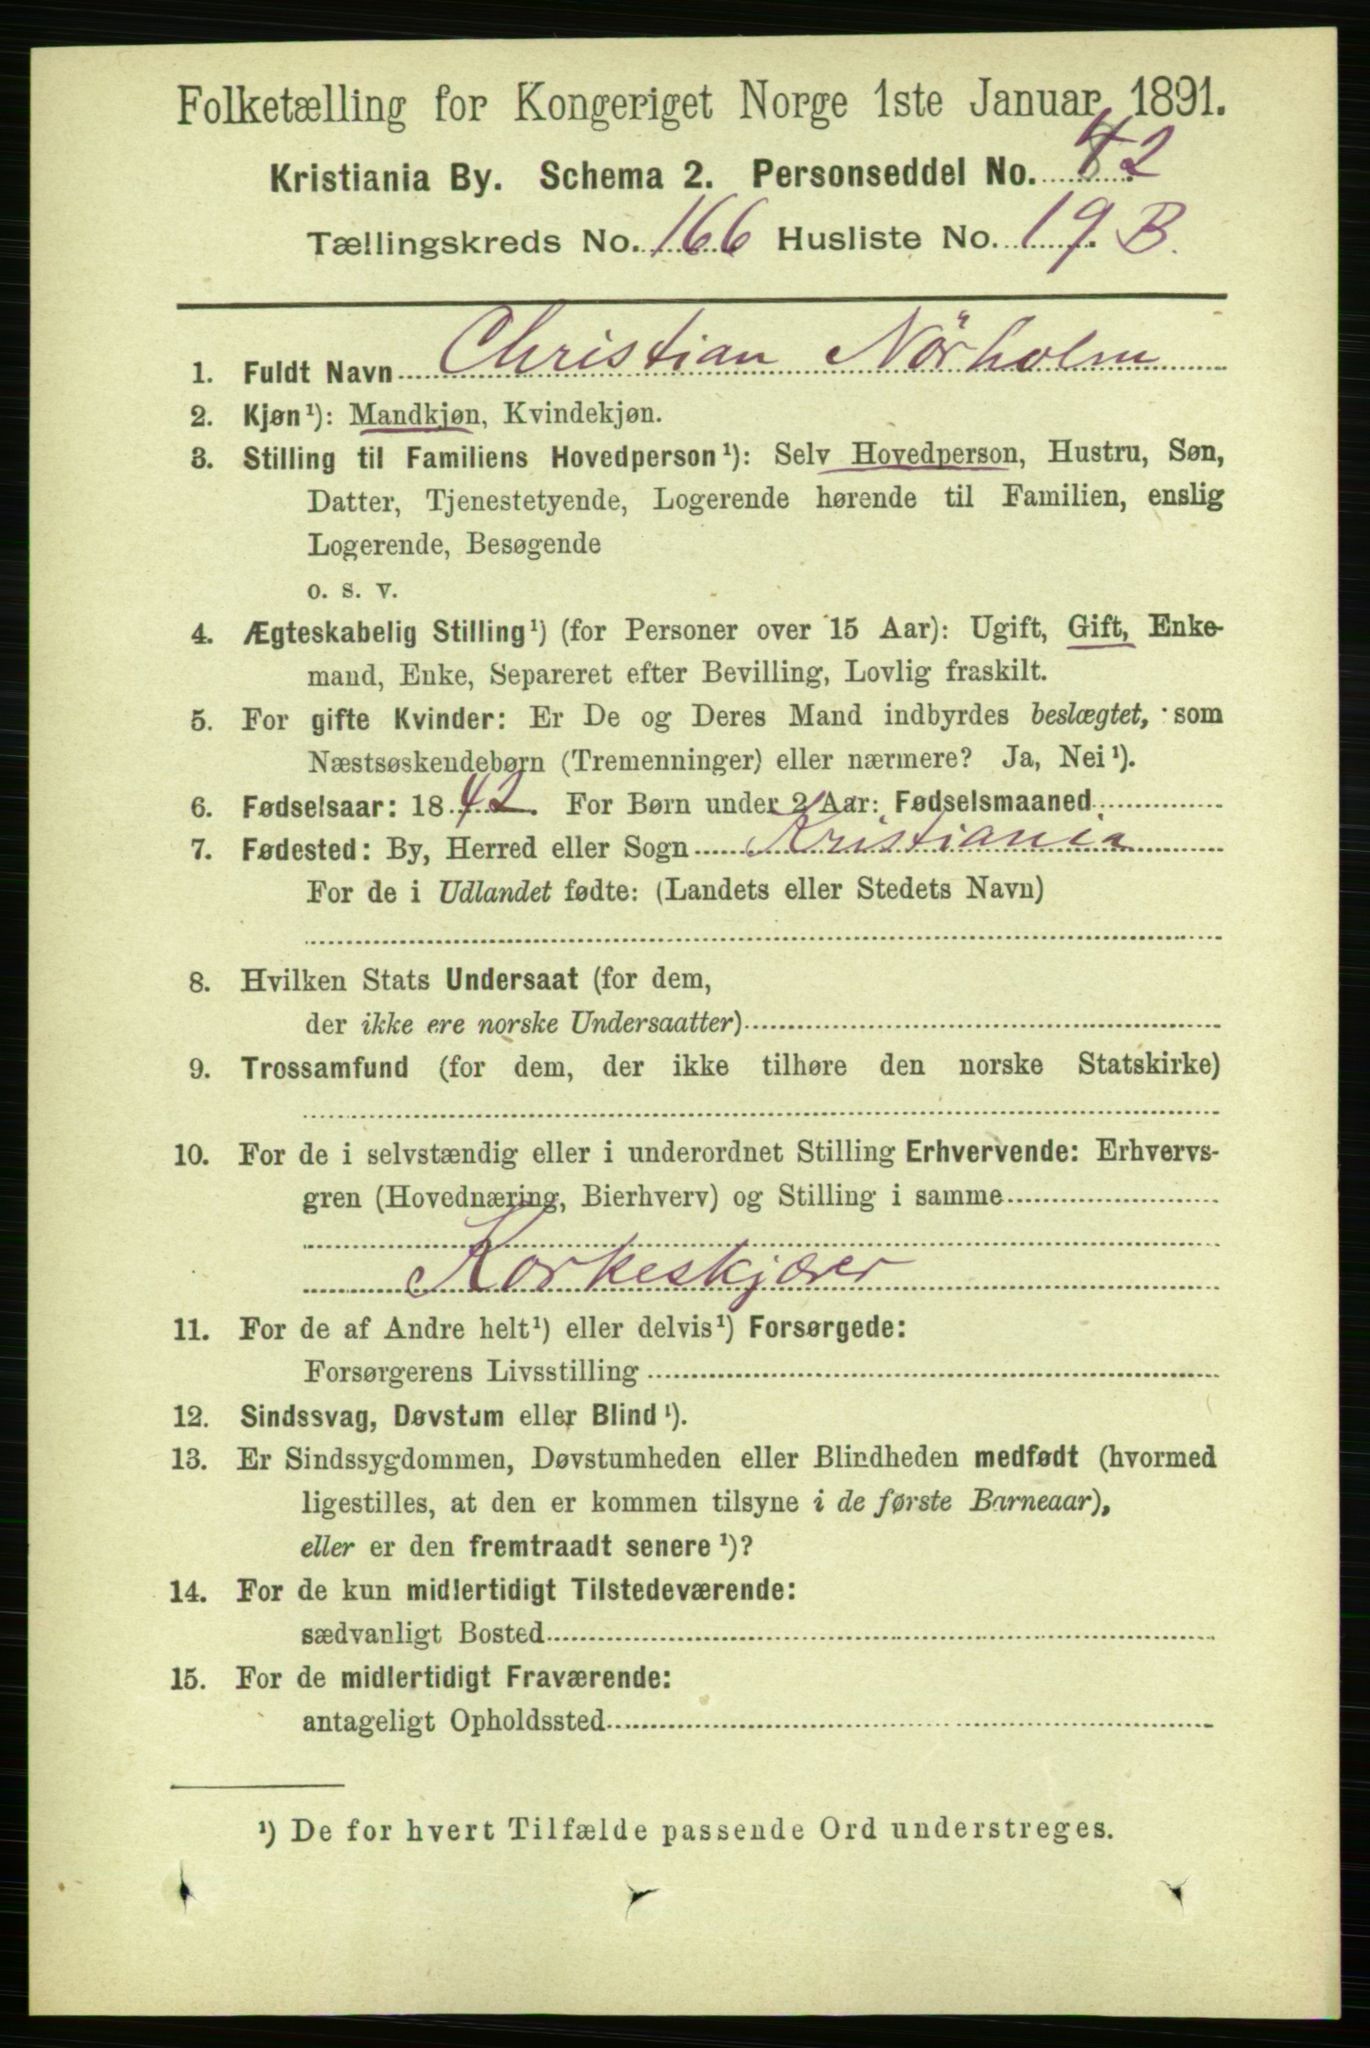 Folketælling for Kongeriget Norge 1ste Januar 1891.
Kristiania By. Schema 2. Personseddel No. 42
Tællingskreds No. 166 Husliste No. 19. B.
1. Fuldt Navn Christian Nörholm
2. Kjøn¹): Mandkjøn, Kvindekjøn.
3. Stilling til Familiens Hovedperson¹): Selv Hovedperson, Hustru, Søn,
Datter, Tjenestetyende, Logerende hørende til Familien, enslig
Logerende, Besøgende
o. s. v.
4. Ægteskabelig Stilling¹) (for Personer over 15 Aar): Ugift, Gift, Enke-
mand, Enke, Separeret efter Bevilling, Lovlig fraskilt.
5. For gifte Kvinder: Er De og Deres Mand indbyrdes beslægtet, som
Næstsøskendebørn (Tremenninger) eller nærmere? Ja, Nei¹).
6. Fødselsaar: 1842. For Børn under 2 Aar: Fødselsmaaned
7. Fødested: By, Herred eller Sogn Kristiania
For de i Udlandet fødte: (Landets eller Stedets Navn)
8. Hvilken Stats Undersaat (for dem,
der ikke ere norske Undersaatter)
9. Trossamfund (for dem, der ikke tilhøre den norske Statskirke)
10. For de i selvstændig eller i underordnet Stilling Erhvervende: Erhvervs-
gren (Hovednæring, Bierhverv) og Stilling i samme
Korkeskjærer
11. For de af Andre helt¹) eller delvis¹) Forsørgede:
Forsørgerens Livsstilling
12. Sindssvag, Døvstum eller Blind¹).
13. Er Sindssygdommen, Døvstumheden eller Blindheden medfødt (hvormed
ligestilles, at den er kommen tilsyne i de første Barneaar),
eller er den fremtraadt senere¹)?
14. For de kun midlertidigt Tilstedeværende:
sædvanligt Bosted
15. For de midlertidigt Fraværende:
antageligt Opholdssted
¹) De for hvert Tilfælde passende Ord understreges.